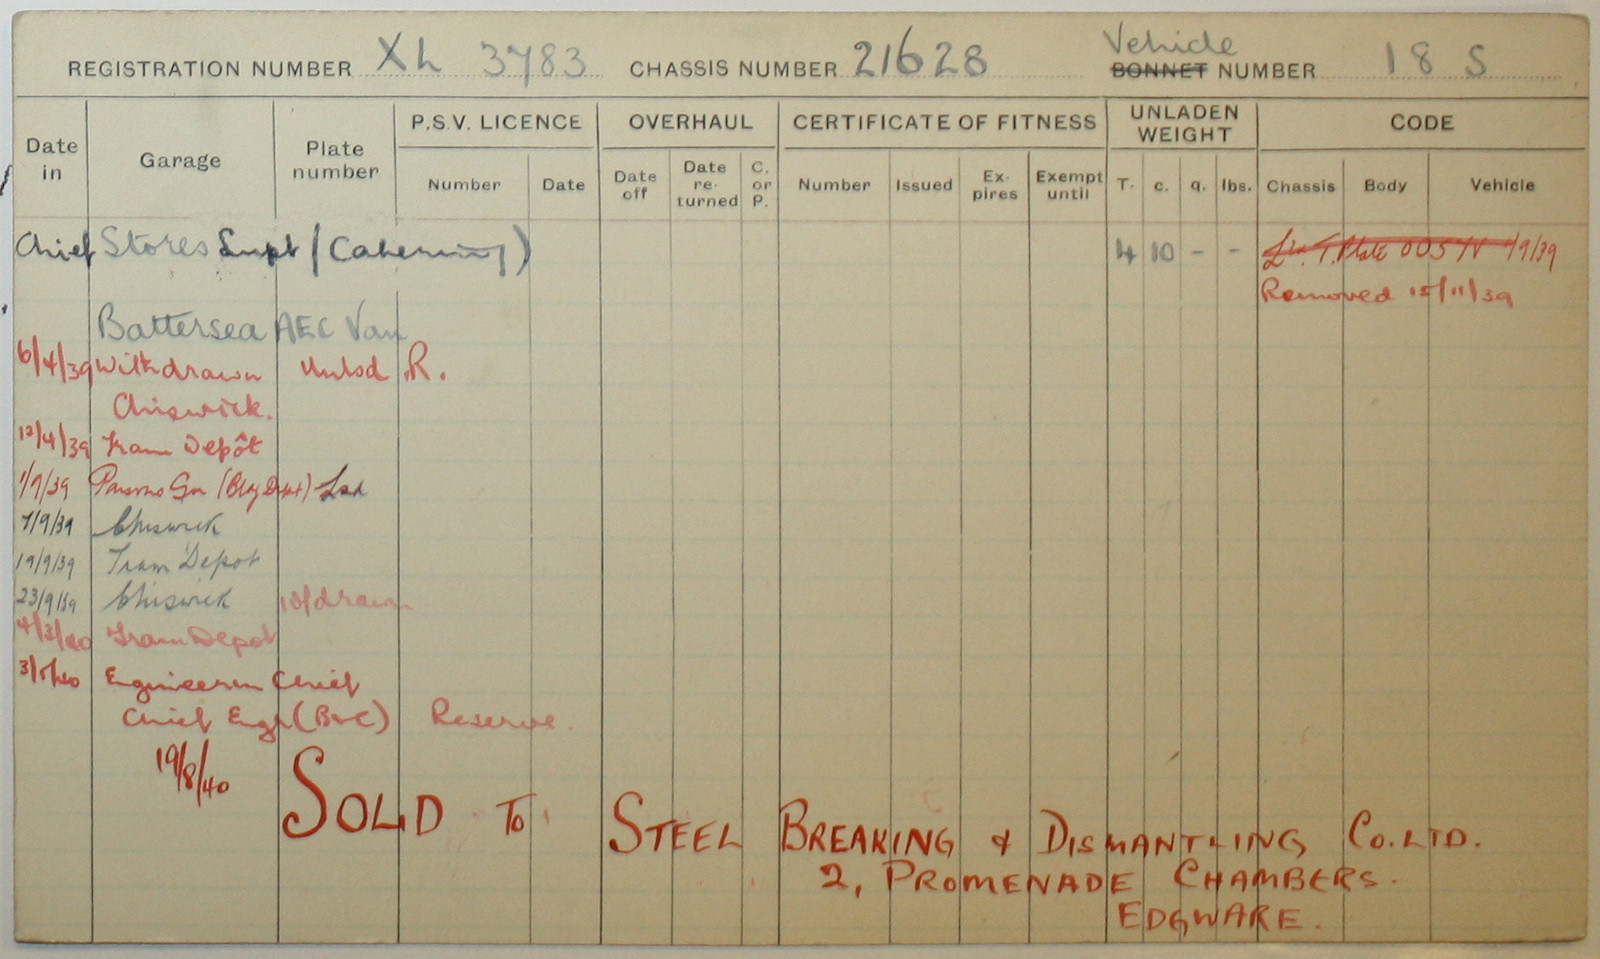 REGISTRATION NUMBER XL 3783 CHASSIS NUMBER 21628 Vehicle BONNET NUMBER 18 S
Date in Garage Plate number P.S.V. LICENCE OVERHAUL CERTIFICATE OF FITNESS UNLADEN WEIGHT CODE
Number Date Date off Date re-turned C. or P. Number Issued Ex-pires Exempt until T. c. q. lbs. Chassis Body Vehicle
Chief Stores Supt (Catering) 4 10 - - T. Plate 005 1/9/39
Removed 15/11/39
Battersea AEC Van
6/4/39 Withdrawn Unlsd R.
Chiswick.
12/4/39 Tram Depôt
1/9/39 Parsons Gn (Bldg Dept) Lsd
7/9/39 Chiswick
19/9/39 Tram Depot
23/9/39 Chiswick W/drawn
4/3/40 Tram Depot
3/5/40 Engineer in Chief
Chief Engr (B&C) Reserve.
19/8/40 SOLD TO STEEL BREAKING & DISMANTLING CO. LTD.
2, PROMENADE CHAMBERS.
EDGWARE.